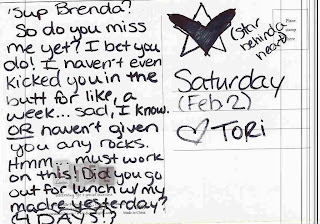 'Sup Brenda?
So do you miss
me yet? I bet you
do! I haven't even
kicked you in the
butt for like, a
week... sad, I know.
OR haven't given
you any rocks.
Hmm... must work
on this! Did you go
out for lunch w/ my
madre yesterday?
4 DAYS!?
(star
behind a
heart)
Place
stamp
here
Saturday
(Feb. 2)
♡ TORI